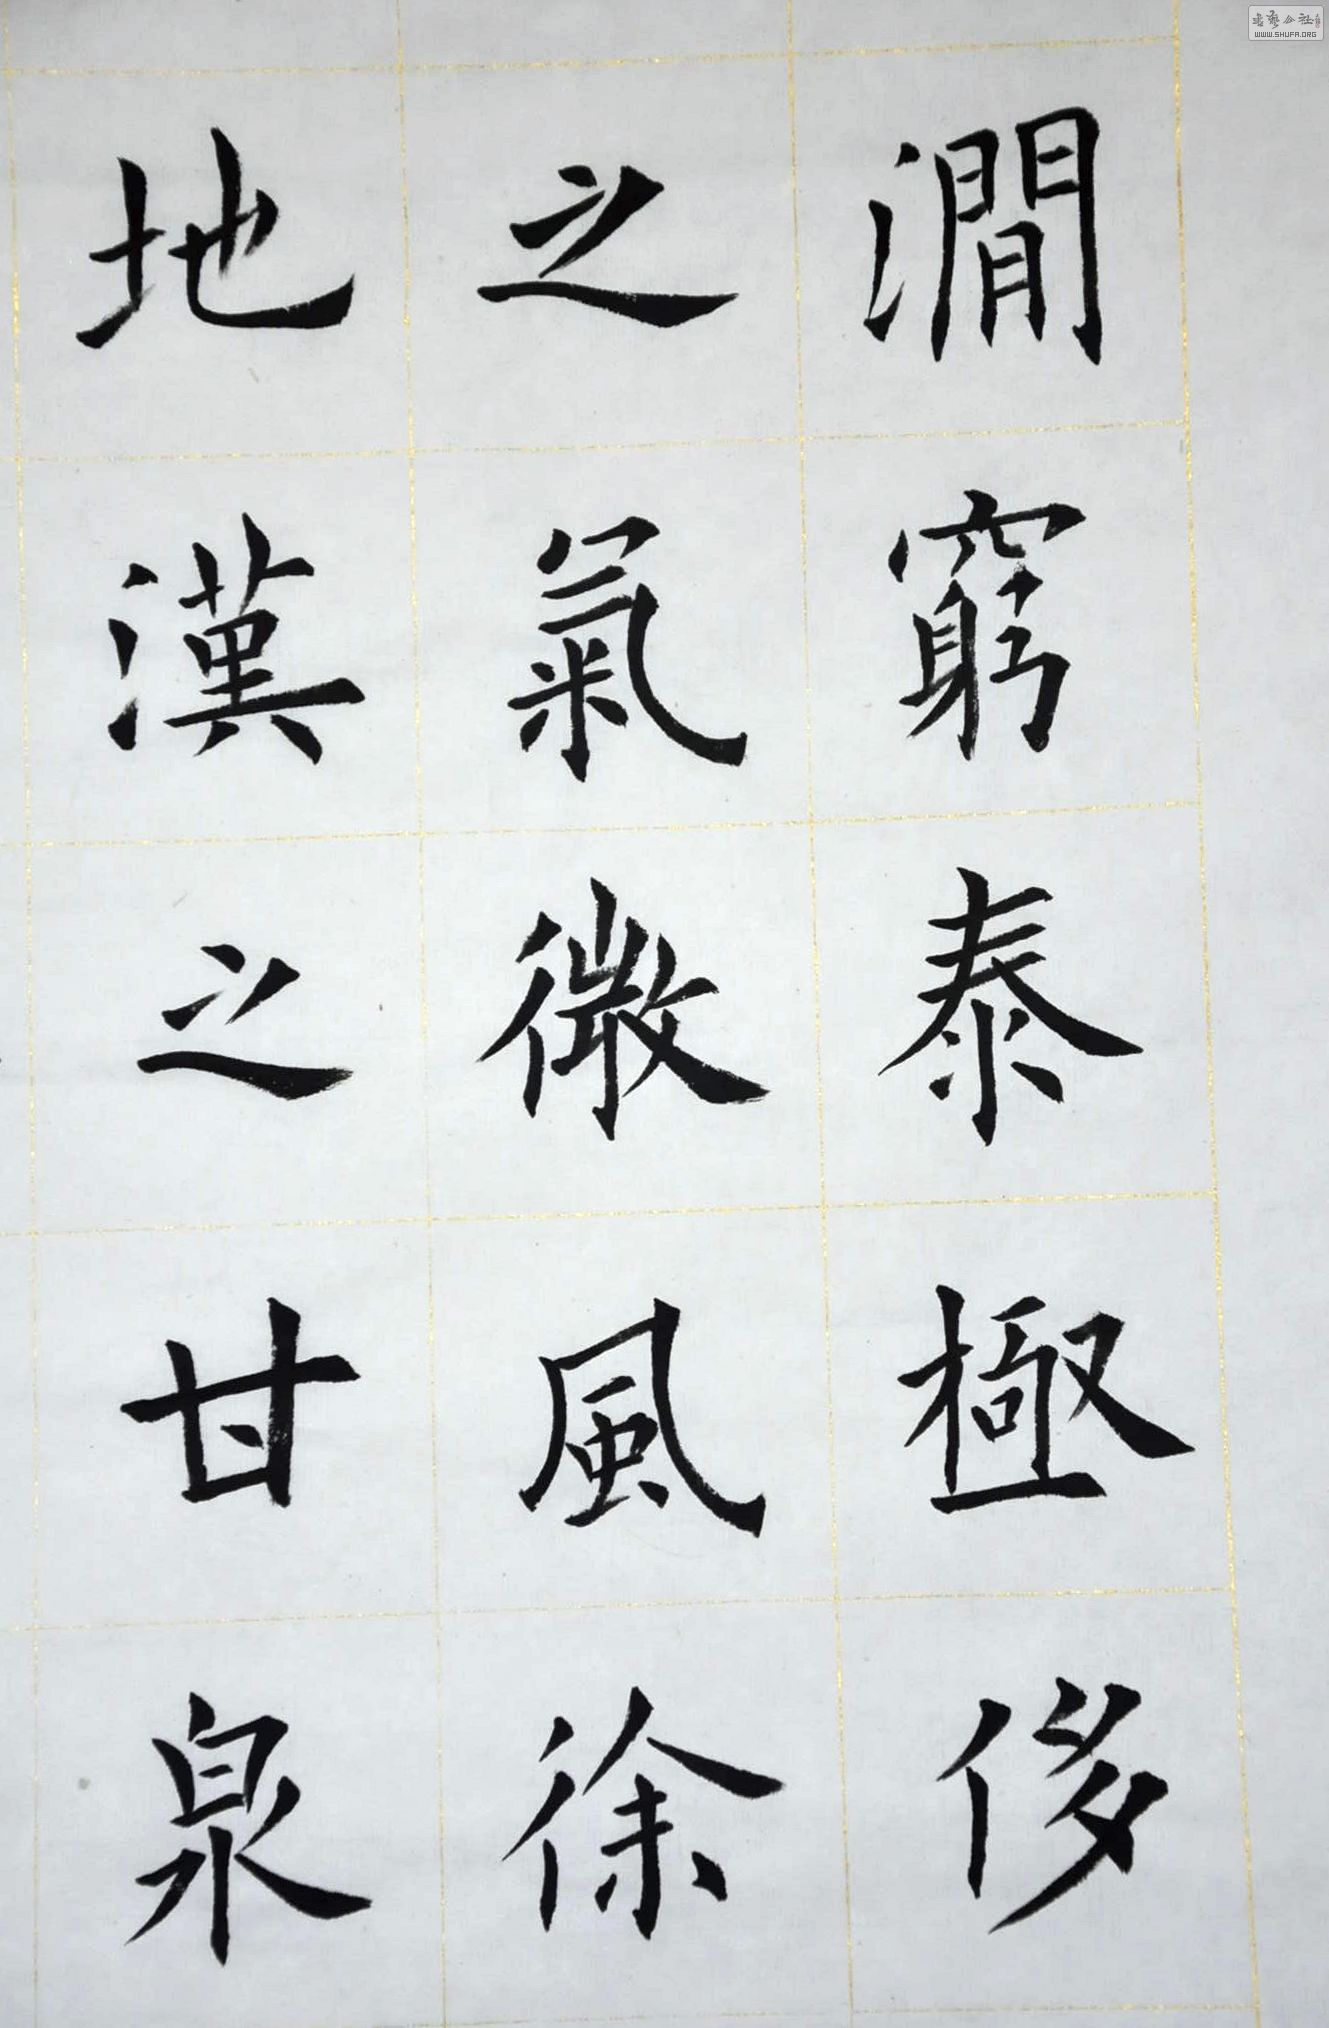 澗窮泰極侈
之氣微風徐
地漢之甘泉
書藝公社
WWW.SHUFA.ORG